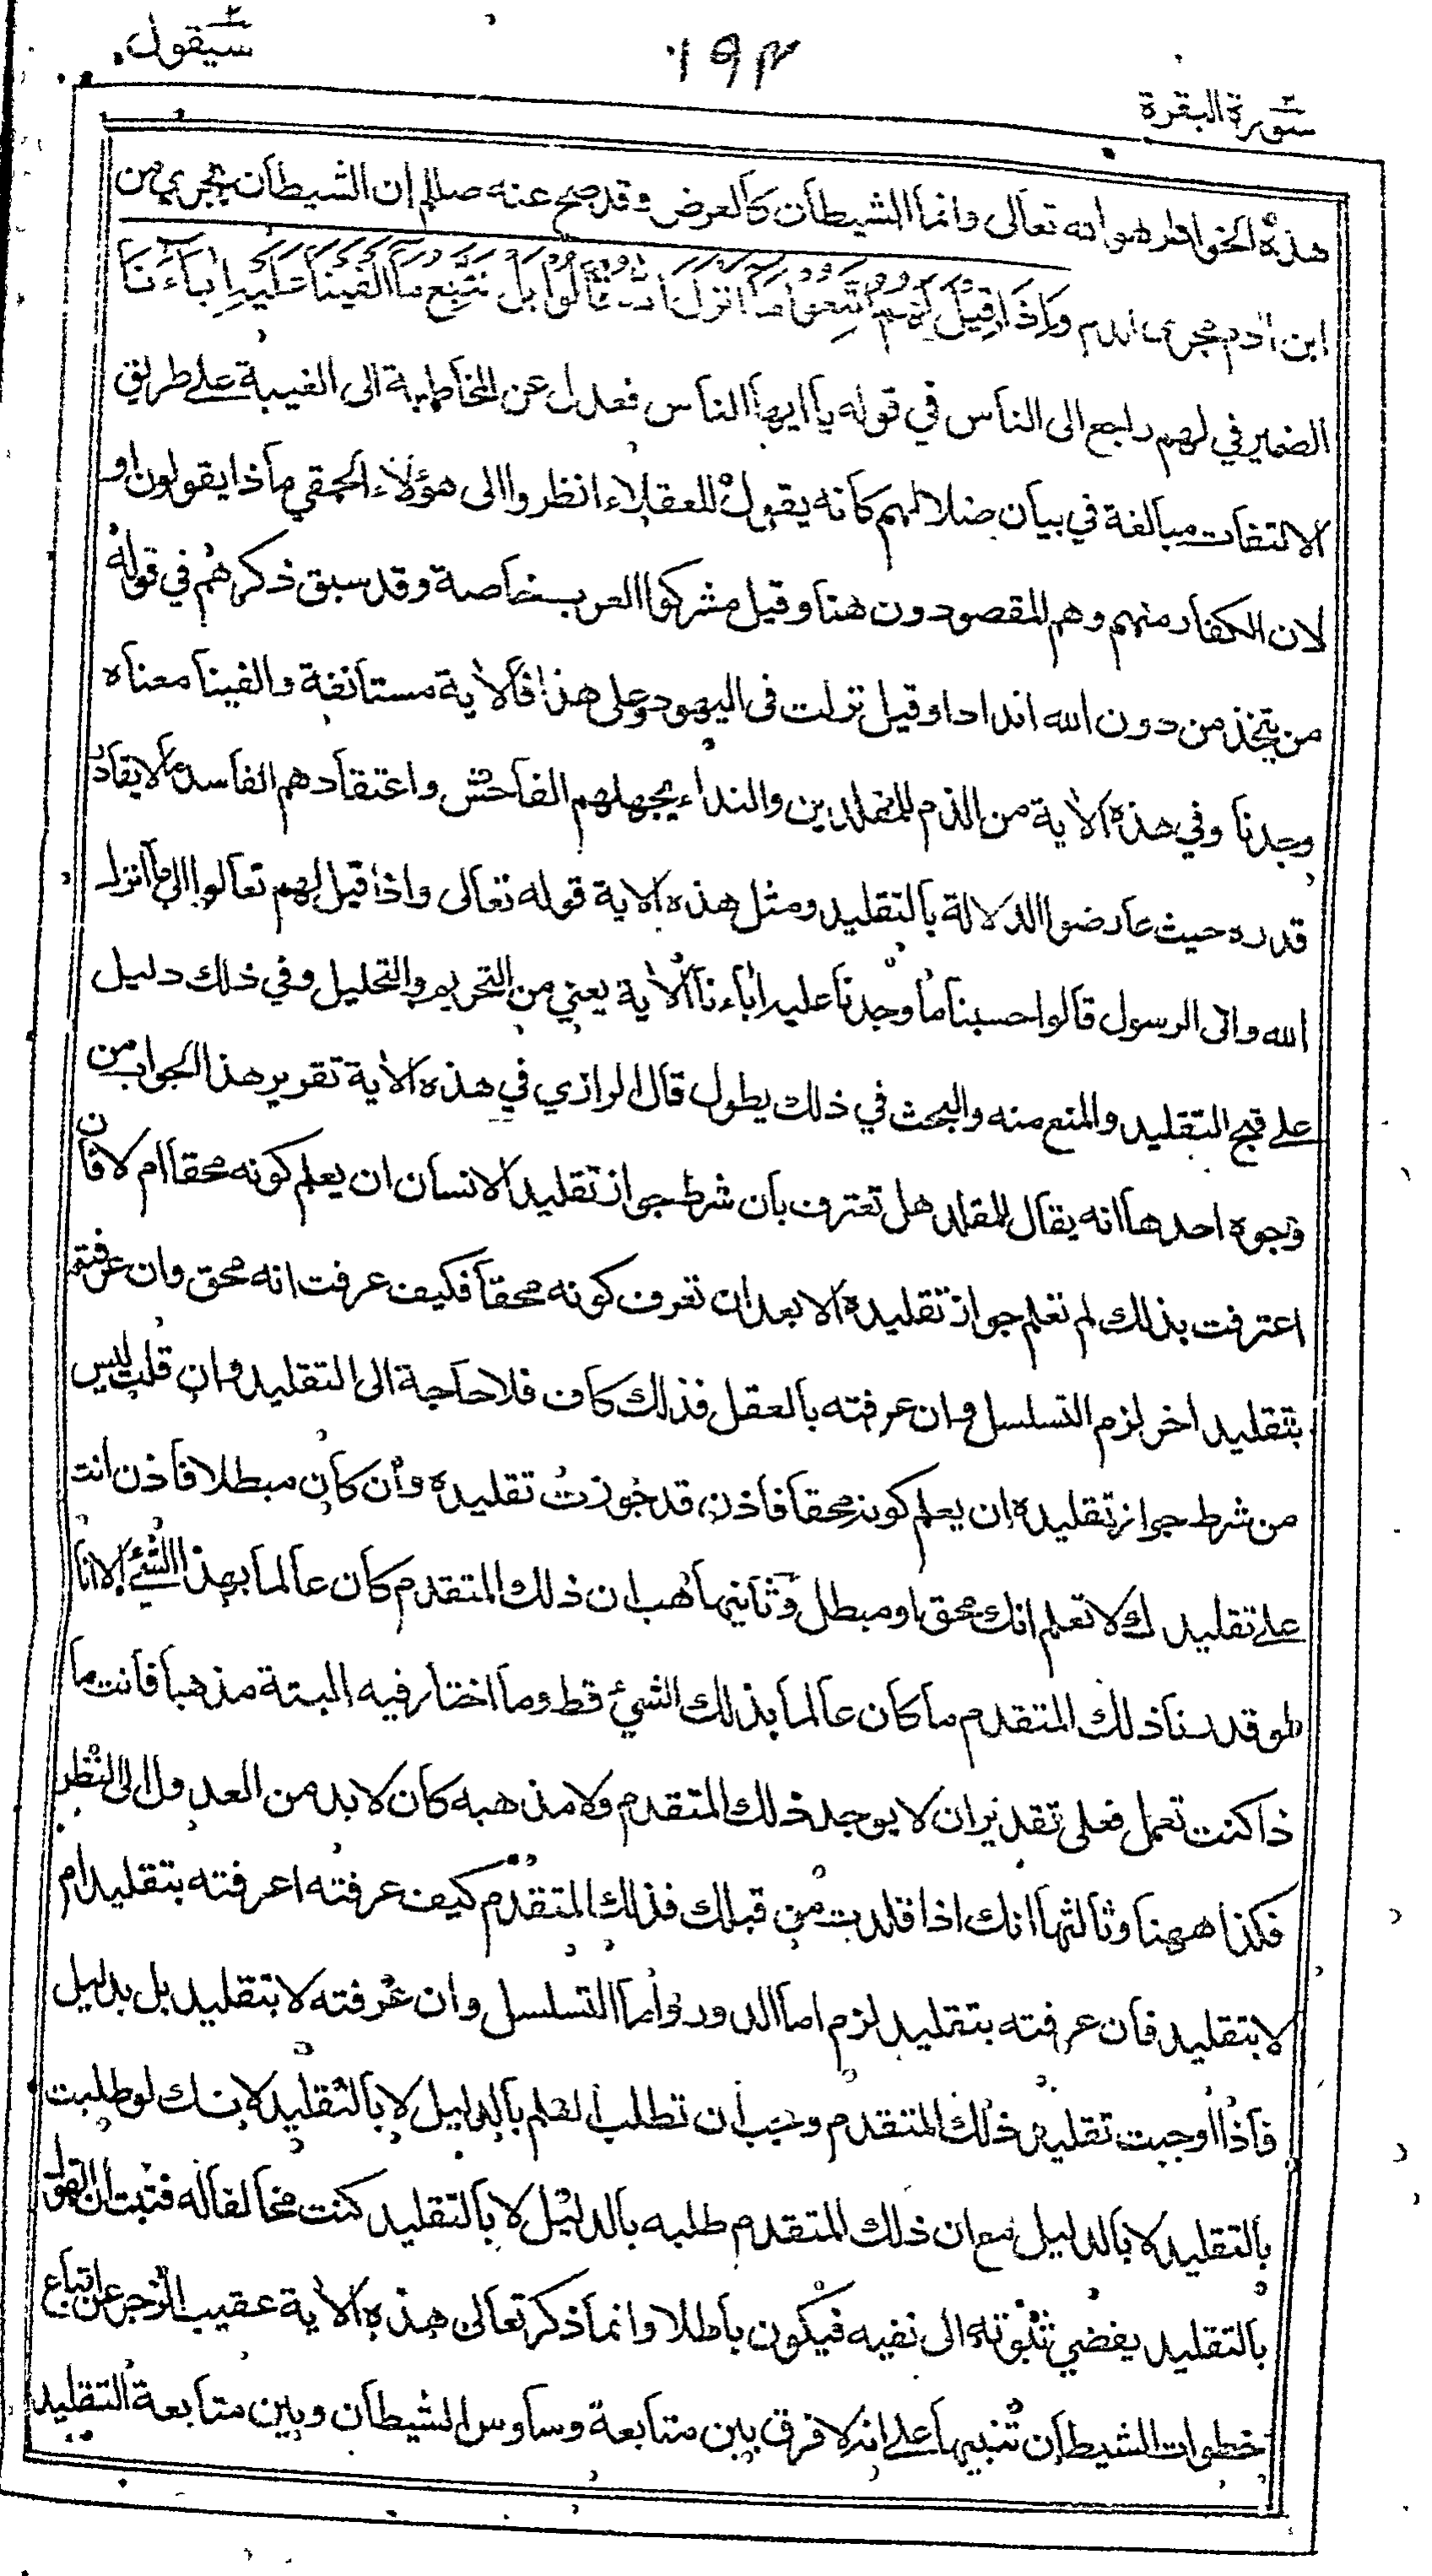 سيقول
١٩٣
سورة البقرة
هذه الخواطر هو الله تعالى وانما الشيطان كالعرض وقد صح عنه صللم ان الشيطان يجري من
ابن ادم مجرى الدم وَإِذَا قِيلَ لَهُمُ اتَّبِعُوا مَا أَنْزَلَ اللهُ قَالُوا بَلْ نَتَّبِعُ مَا أَلْفَيْنَا عَلَيْهِ اٰبَآءَنَا
الضمير في لهم راجع الى الناس في قوله يا ايها الناس فعدل عن المخاطبة الى الغيبة على طريق
الالتفات مبالغة في بيان ضلالهم كانه يقول للعقلاء انظروا الى هؤلاء الحمقي ماذا يقولون او
لان الكفار منهم وهم المقصودون هنا وقيل مشركوا العرب خاصة وقد سبق ذكرهم في قوله
من يتخذ من دون الله اندادا وقيل نزلت في اليهود وعلى هذا فالاية مستانفة والفينا معناه
وجدنا وفي هذه الاية من الذم للمقلدين والنداء بجهلهم الفاحش واعتقادهم الفاسد ما لا يقادر
قدره حيث عارضوا الدلالة بالتقليد ومثل هذه الاية قوله تعالى واذا قيل لهم تعالوا الى ما انزل
الله والى الرسول قالوا حسبنا ما وجدنا عليه اباءنا الاية يعني من التحريم والتحليل وفي ذلك دليل
على قبح التقليد والمنع منه والبحث في ذلك يطول قال الرازي في هذه الاية تقرير هذا الجواب من
وجوه احدها انه يقال للمقلد هل تعترف بان شرط جواز تقليد الانسان ان يعلم كونه محقا ام لا فان
اعترفت بذلك لم تعلم جواز تقليده الا بعد ان تعرف كونه محقا فكيف عرفت انه محق وان عرفته
بتقليد اخر لزم التسلسل وان عرفته بالعقل فذلك كاف فلا حاجة الى التقليد وان قلت ليس
من شرط جواز تقليده ان يعلم كونه محقا فاذن قد جوزت تقليده وان كان مبطلا فاذن انت
على تقليدك لا تعلم انك محق او مبطل وثانيها هب ان ذلك المتقدم كان عالما بهذا الشيء الا انا
لو قدرنا ذلك المتقدم ما كان عالما بذلك الشيء قط وما اختار فيه البتة مذهبا فانت ما
ذا كنت تعمل فعلى تقدير ان لا يوجد ذلك المتقدم ولا مذهبه كان لا بد من العدول الى النظر
فكذا ههنا وثالثها انك اذا قلدت من قبلك فذلك المتقدم كيف عرفته اعرفته بتقليد ام
لا بتقليد فان عرفته بتقليد لزم اما الدور واما التسلسل وان عرفته لا بتقليد بل بدليل
فاذا اوجبت تقليد ذلك المتقدم وجب ان تطلب العلم بالدليل لا بالتقليد لانك لو طلبت
بالتقليد لا بالدليل مع ان ذلك المتقدم طلبه بالدليل لا بالتقليد كنت مخالفا له فثبت ان القول
بالتقليد يفضي ثبوته الى نفيه فيكون باطلا وانما ذكر تعالى هذه الاية عقيب الزجر عن اتباع
خطوات الشيطان تنبيها على انه لا فرق بين متابعة وساوس الشيطان وبين متابعة التقليد